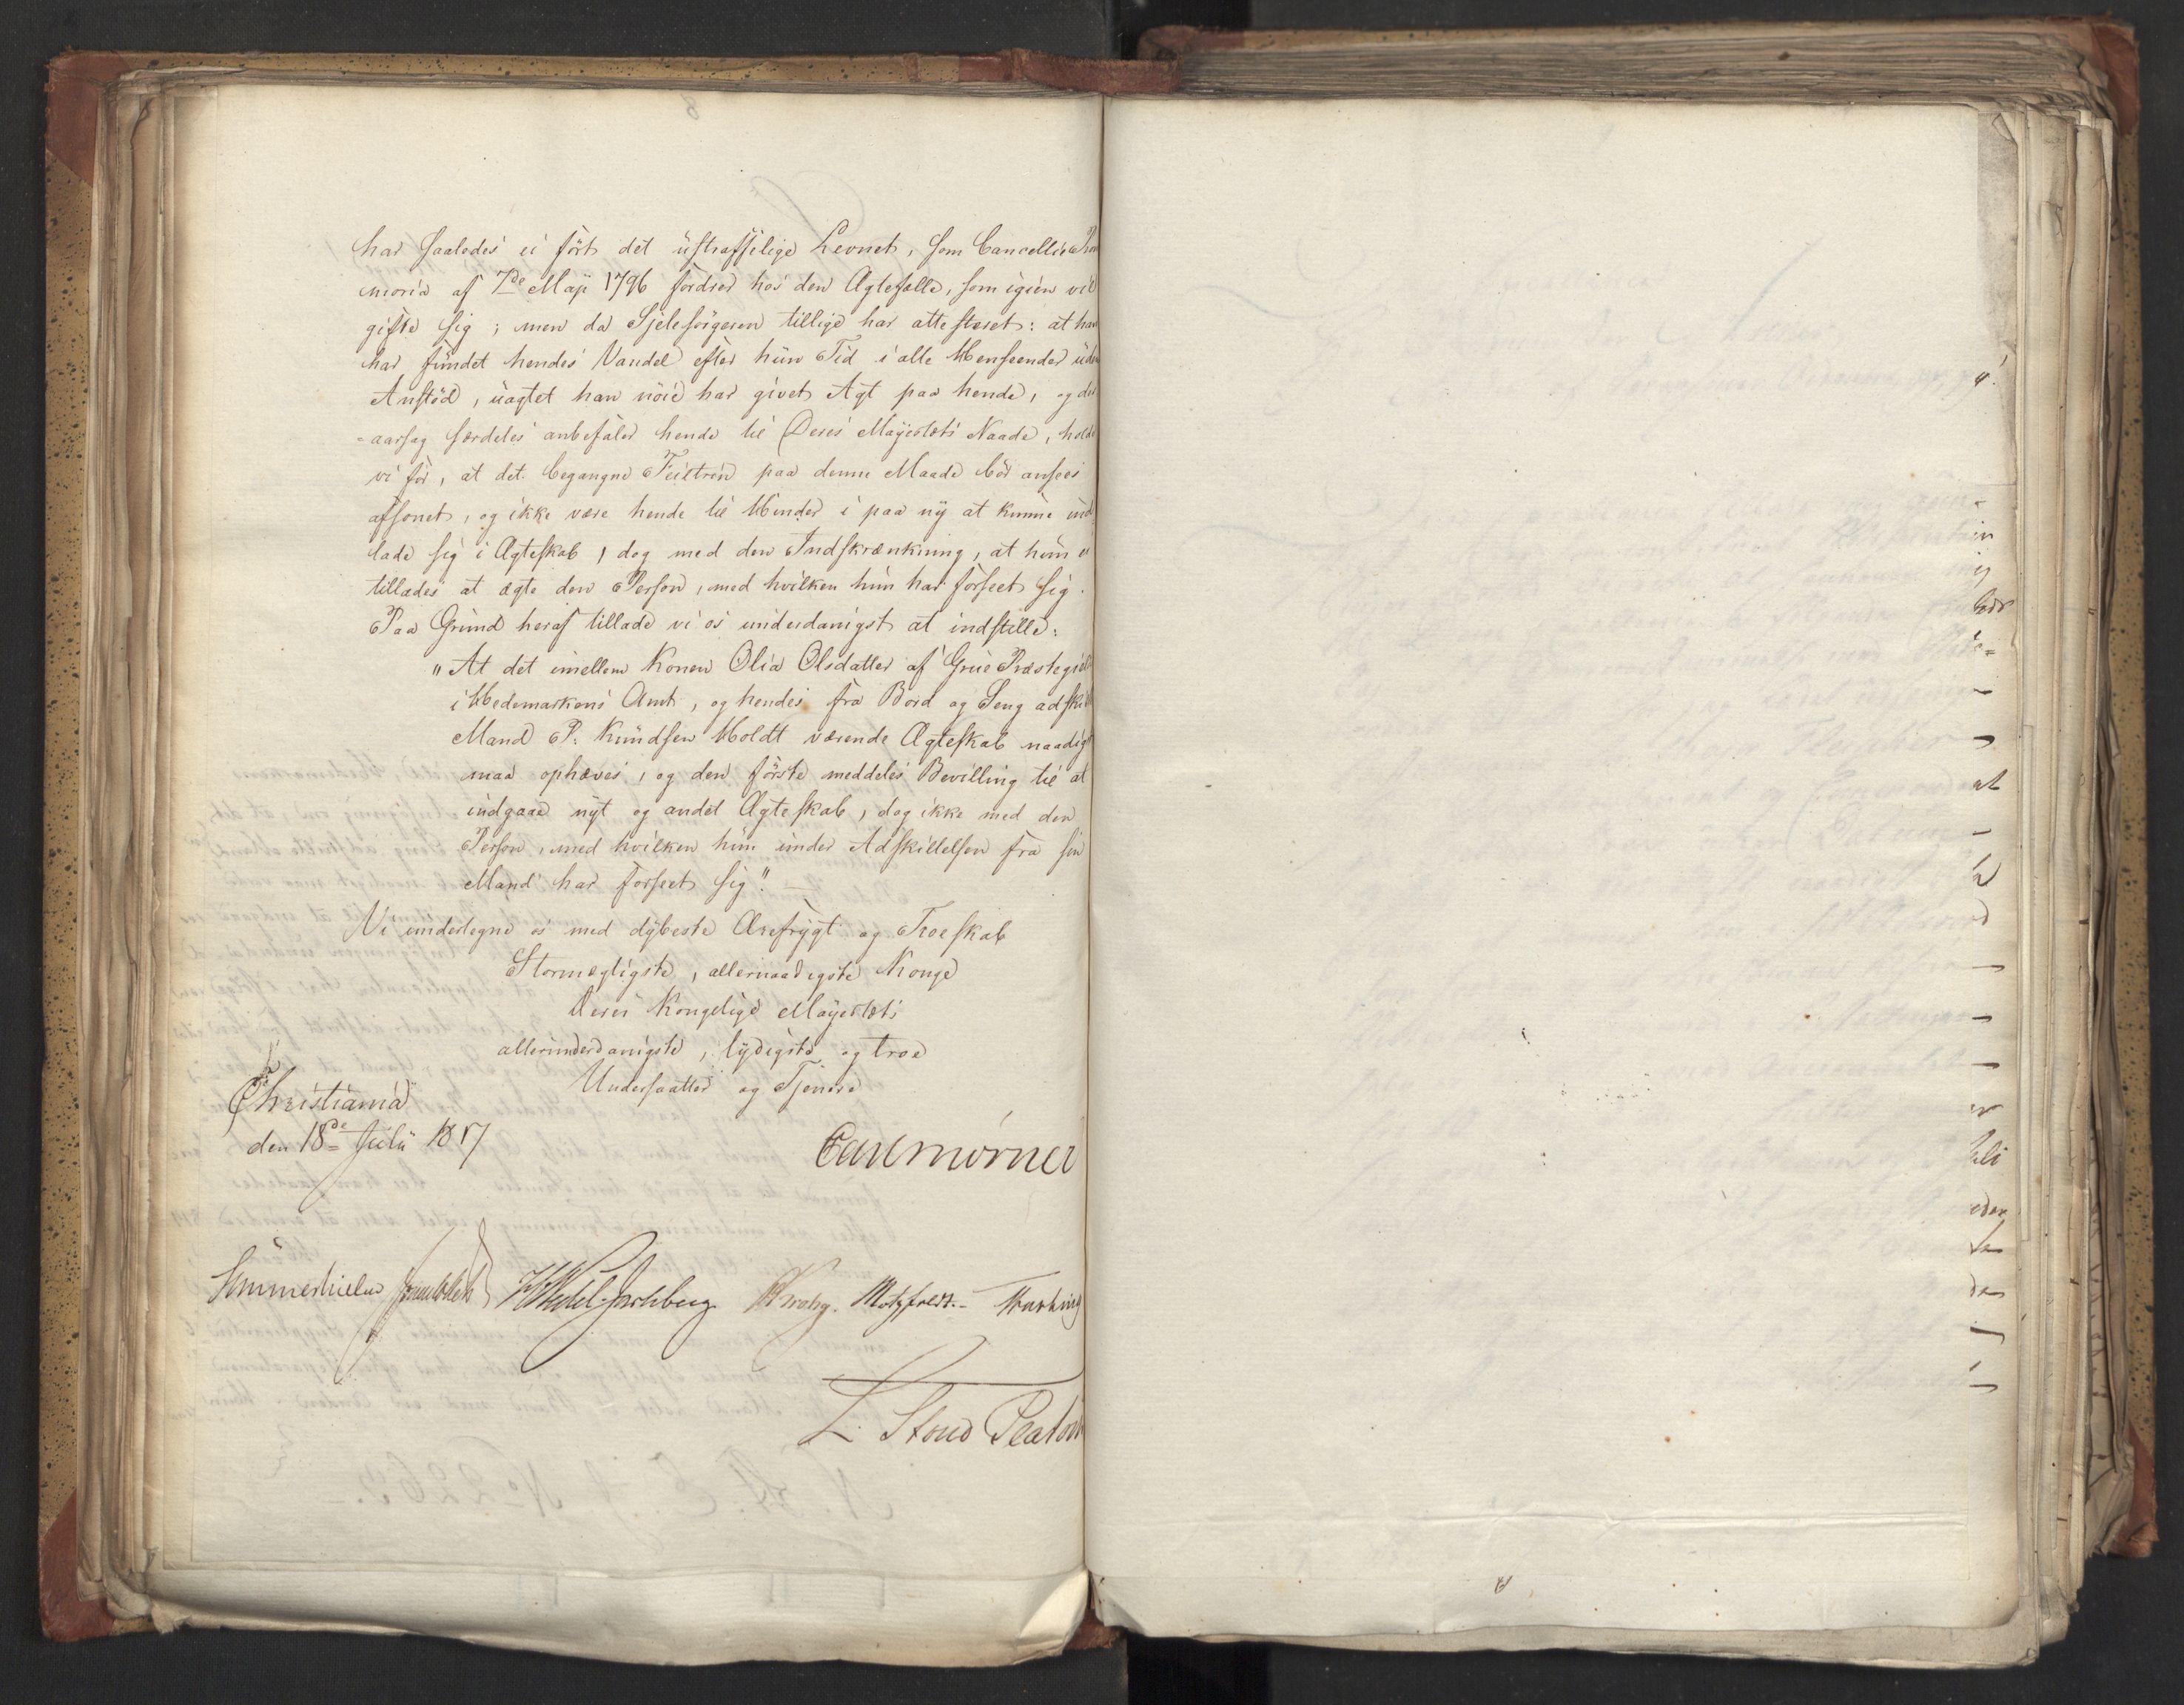 8
har saaledes ei ført det ustraffelige Levnet, som Cancellie Pro
moria af 7de Maji 1796 fordrer hos den Ægtefælle, som igien vil
gifte sig; men da Sjelesørgeren tillige har attesteret: at han
har fundet hendes Vandel efter hün Tid i alle Henseender ude
Anstød, uagtet han nöie har givet Agt paa hende, og der
-aarsag særdeles anbefaler hende til Deres Majestæts Naade, holde
vi for, at det begangne Feiltrin paa denne Maade bör ansees
afsonet, og ikke være hende til Hinder i paa ny at kunne ind
lade sig i Ægteskab, dog med den Indskrænkning, at hun ei
tillades at ægte den Person, med hvilken hun har forseet sig.
Paa Grund heraf tillade vi os underdanigst at indstille:
"At det imellem Konen Olia Olsdatter af Grue Præstegield
i Hedemarkens Amt, og hendes fra Bord og Seng adskilte
Mand P. Knudsen Holdt værende Ægteskab naadigst
maa ophæves, og den første meddeles Bevilling til at
indgaae nyt og andet Ægteskab, dog ikke med den
Person, med hvilken hun under Adskillelsen fra sin
Mand har forseet sig".
Vi undertegne os med dybeste Ærefrygt og Troeskab
Stormægtigste, allernaadigste Konge
Deres Kongelige Majestæts
allerunderdanigste, lydigste og troe
Undersaatter og Tjenere
Christiania
den 18de Julii 1817
Carl Mörner
Sommerhielm HWedel-Jarlsberg Krohg. Motzfeldt.
L. Stoud Platou
at